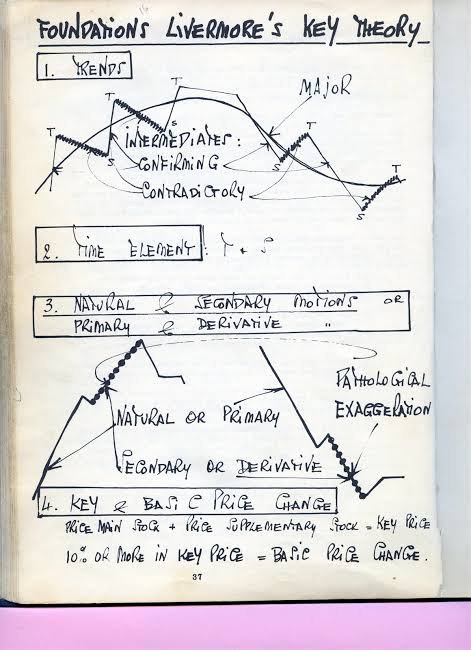 FOUNDATIONS LIVERMORE'S KEY THEORY
1. TRENDS
MAJOR
T
T
T
T
T
S
S
S
S
INTERMEDIATES:
CONFIRMING
CONTRADICTORY
2. TIME ELEMENT: T & S
3. NATURAL & SECONDARY MOTIONS OR
PRIMARY & DERIVATIVE "
PATHOLOGICAL
EXAGGERATION
NATURAL OR PRIMARY
SECONDARY OR DERIVATIVE
4. KEY & BASIC PRICE CHANGE
PRICE MAIN STOCK + PRICE SUPPLEMENTARY STOCK = KEY PRICE
10% OR MORE IN KEY PRICE = BASIC PRICE CHANGE.
37